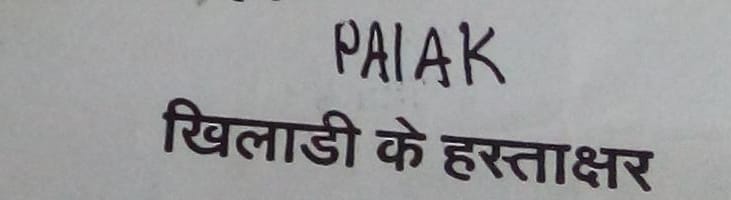 PAlAK
खिलाडी के हस्ताक्षर